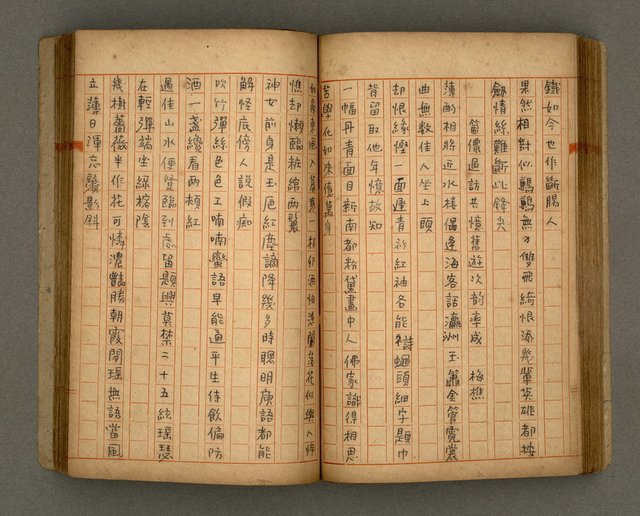 鐵如今也作斷腸人
果然相對似鶼鶼無力雙飛綺恨添幾輩英雄都挫
劍情絲難斷此鋒尖
笛儂過訪共憶舊遊次韵率成　梅樵
薄酌相將近水樓偶逢海客話瀛洲玉簫金管霓裳
曲無數佳人坐上頭
却恨緣慳一面運青衫紅袖各能詩蛔頭細字題巾
背留取他年憶故知
一幅丹青面目新南都粉黛畫中人佛家識得相思
苦學化如來億萬身
如扇東風入一杯卯酒怕憑闌落花似與人憔
悴却懶臨粧綰兩鬟
神女前身是玉卮紅塵謫降幾多時聰明庾語都能
解怪底傍人說假痴
吹竹彈絲色色工喃喃蠻語早能通平生侍飲偏防
酒一盞纔看兩頰紅
遇佳山水便登臨到處留題興莫禁二十五絃瑶瑟
在輕彈端坐綠榕陰
幾樹薔薇半作花可憐濃豔勝朝霞閒瑶無語當風
立薄日渾忘鬢影斜